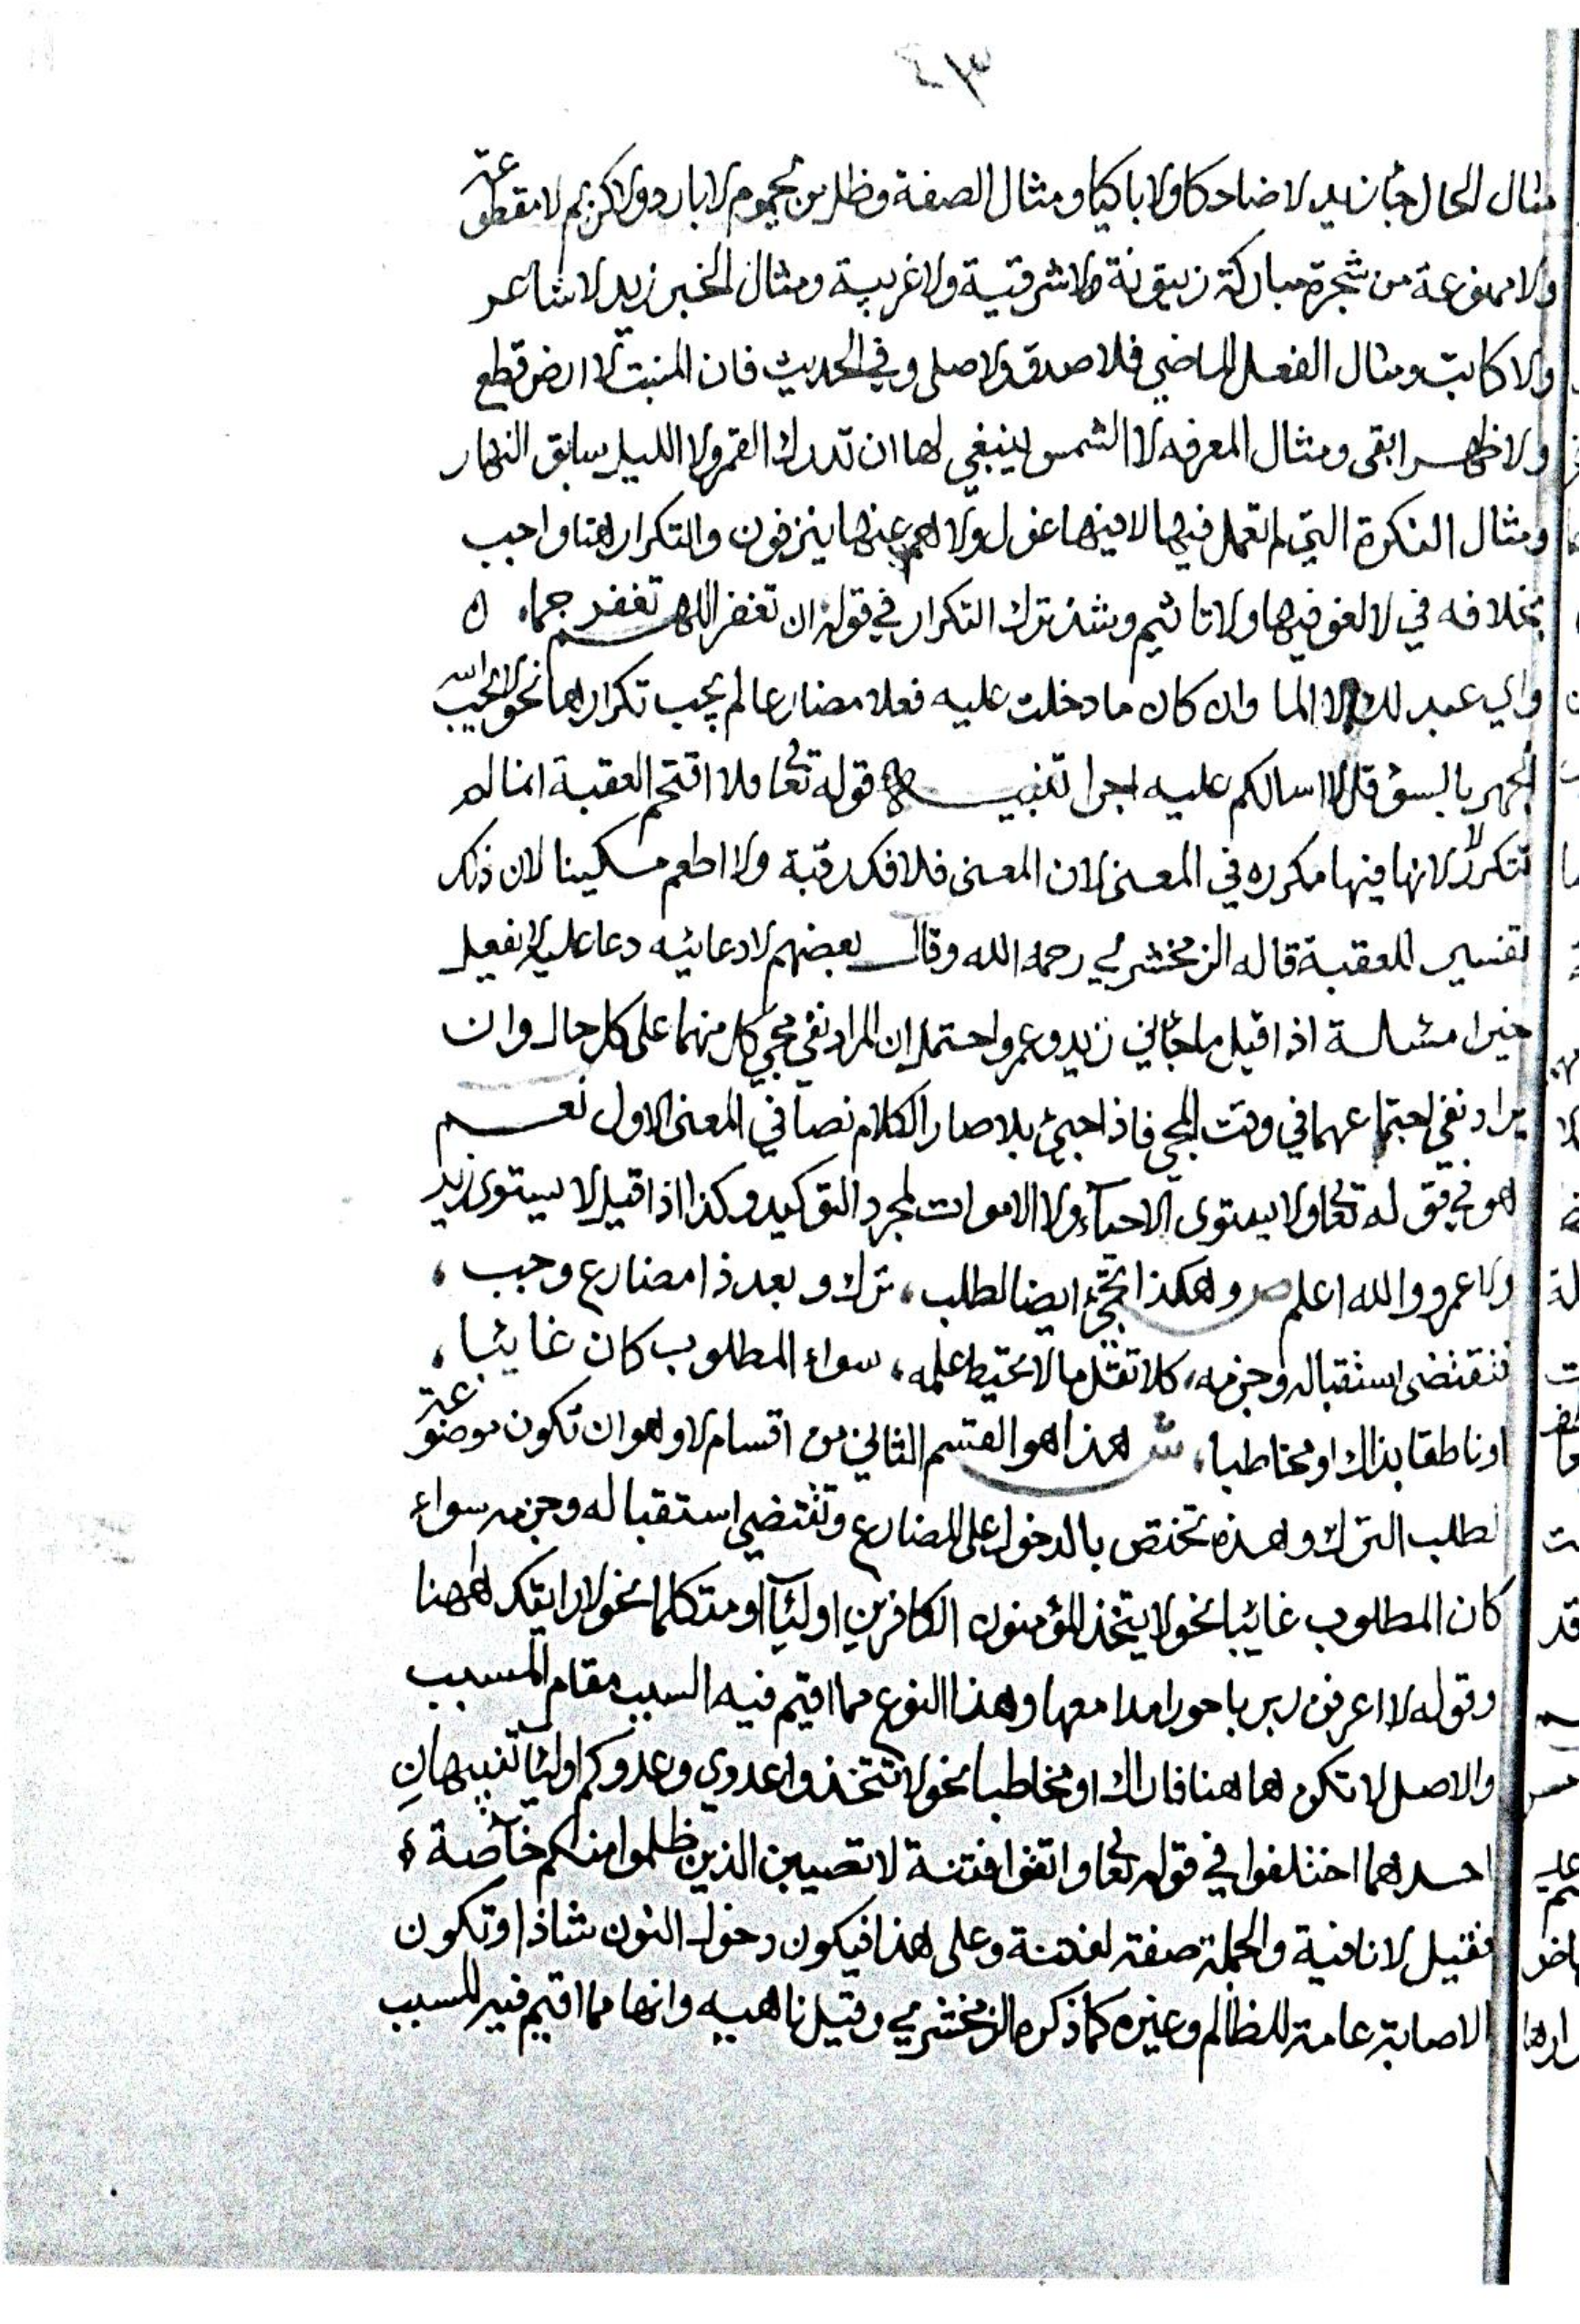 ٤٣
مثال الحال جا زيد لا ضاحكا ولا باكيا ومثال الصفة وظل من يحموم لا بارد ولا كريم لا مقطوعة
ولا ممنوعة من شجرة مباركة زيتونة لا شرقية ولا غربية ومثال الخبر زيد لا شاعر
ولا كاتب ومثال الفعل الماضي فلا صدق ولا صلى وفي الحديث فان المنبت لا ارض قطع
ولا ظهرا ابقى ومثال المعرفه لا الشمس ينبغي لها ان تدرك القمر ولا الليل سابق النهار
ومثال النكرة التي لم تعمل فيها لا فيها غول ولا هم عنها ينزفون والتكرار هنا واجب
بخلافه في لا لغو فيها ولا تاثيم وشذ ترك التكرار في قوله ان تغفر اللهم تغفر جما
واي عبد لك لا الما وان كان ما دخلت عليه فعلا مضارعا لم يجب تكرارها نحو لا يحب الله
الجهر بالسؤ قل لا اسالكم عليه اجرا تنبيه قوله تعالى فلا اقتحم العقبة انما لم
تتكرر لا لانها فيها مكرره في المعنى لان المعنى فلا فك رقبة ولا اطعم مسكينا لان ذلك
تفسير للعقبة قاله الزمخشري رحمه الله وقال بعضهم لا دعائيه دعا عليه الا يفعل
خيرا مسالة اذا قيل ما جاني زيد وعمرو احتمل ان المراد نفي مجي كل منهما على كل حال وان
يراد نفي اجتماعهما في وقت المجي فاذا جيئ بلا صار الكلام نصا في المعنى الاول نعم
هو في قوله تعالى ولا يستوى الاحيآء ولا الاموات لمجرد التوكيد وكذا اذا قيل لا يستوى زيد
ولا عمرو والله اعلم ص وهكذا تجئ ايضا لطلب، ترك وبعد ذا مضارع وجب،
فتقتضى استقباله وجزمه، كلا تقل ما لا تحيط علمه، سواء المطلوب كان غايبا،
او ناطقا بذاك او مخاطبا، ش هذا هو القسم الثاني من اقسام لا وهو ان تكون موضوعة
لطلب الترك وهذه تختص بالدخول على المضارع وتقتضي استقباله وجزمه سواء
كان المطلوب غايبا نحو لا يتخذ المؤمنون الكافرين اوليآء او متكلما نحو لا ارايتك ههنا
وقوله لا اعرفن ربربا حورا مدامعها وهذا النوع مما اقيم فيه السبب مقام المسبب
والاصل لا تكن هاهنا فاراك او مخاطبا نحو لا تتخذوا عدوي وعدوكم اوليا تنبيهان
احدهما اختلفوا في قوله تعالى واتقوا فتنة لا تصيبن الذين ظلموا منكم خآصة
فقيل لا نافية والجملة صفة لفتنة وعلى هذا فيكون دخول النون شاذا وتكون
الاصابة عامة للظالم وغيره كما ذكره الزمخشري وقيل ناهيه وانها مما اقيم فيه السبب